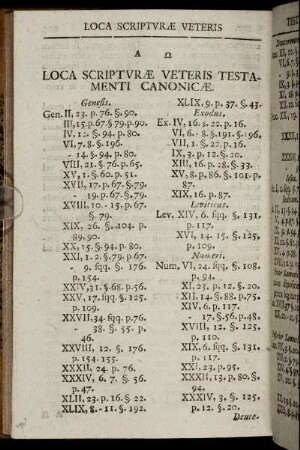 LOCA SCRIPTVRÆ VETERIS
A Ω
LOCA SCRIPTVRÆ VETERIS TESTA-
MENTI CANONICÆ.
Genesis.
Gen. II, 23. p. 76. §. 90.
III, 15. p. 67. §. 79. p. 90.
IV, 12. §. 94. p. 80.
VI, 7. 8. §. 196.
- 14. §. 94. p. 80.
VIII, 21. §. 76. p. 65.
XV, 1. §. 60. p. 51.
XVII, 17. p. 67. §. 79.
- 19. p. 67. §. 79.
XVIII, 10. - 15. p. 67.
§. 79.
XIX, 26. §. 104. p.
89. 90.
XX, 15. §. 94. p. 80.
XXI, 1. 2. §. 79. p. 67.
- 9. sqq. §. 176.
p. 154.
XXIV, 31. §. 68. p. 56.
XXV, 17. sqq. §. 125.
p. 109.
XXVII, 34. sqq. p. 76.
- 38. §. 55. p.
46.
XXVIII, 12. §. 176.
p. 154. 155.
XXXII, 24. p. 76.
XXXIV, 6. 7. §. 56.
p. 47.
XLII, 23. p. 16. §. 22.
XLIX, 8. - 11. §. 192.
XLIX, 9. p. 37. §. 43.
Exodus.
Ex. IV, 16. s. 22. p. 16.
VI, 6. - 8. §. 191. §. 196.
VII, 1. §. 22. p. 16.
IX, 3. p. 12. §. 20.
XIII, 16. p. 28. §. 33.
XV, 8. p. 86. §. 101. p.
87.
XIX, 16. p. 87.
Leviticus.
Lev. XIV, 6. sqq. §. 131.
p. 117.
XVI, 14. 15. §. 125.
p. 109.
Numeri.
Num. VI, 24. sqq. §. 108.
p. 94.
XI, 23. p. 12. §. 20.
XII, 14. §. 88. p. 75.
XIV, 6. p. 117.
- 17. §. 56. p. 48.
XVIII, 12. §. 125.
p. 110.
XIX, 6. sqq. §. 131.
p. 117.
XXI, 23. p. 95.
XXXII, 13. p. 80. §.
94.
XXXIV, 3. §. 125.
p. 12. §. 20.
Deute.